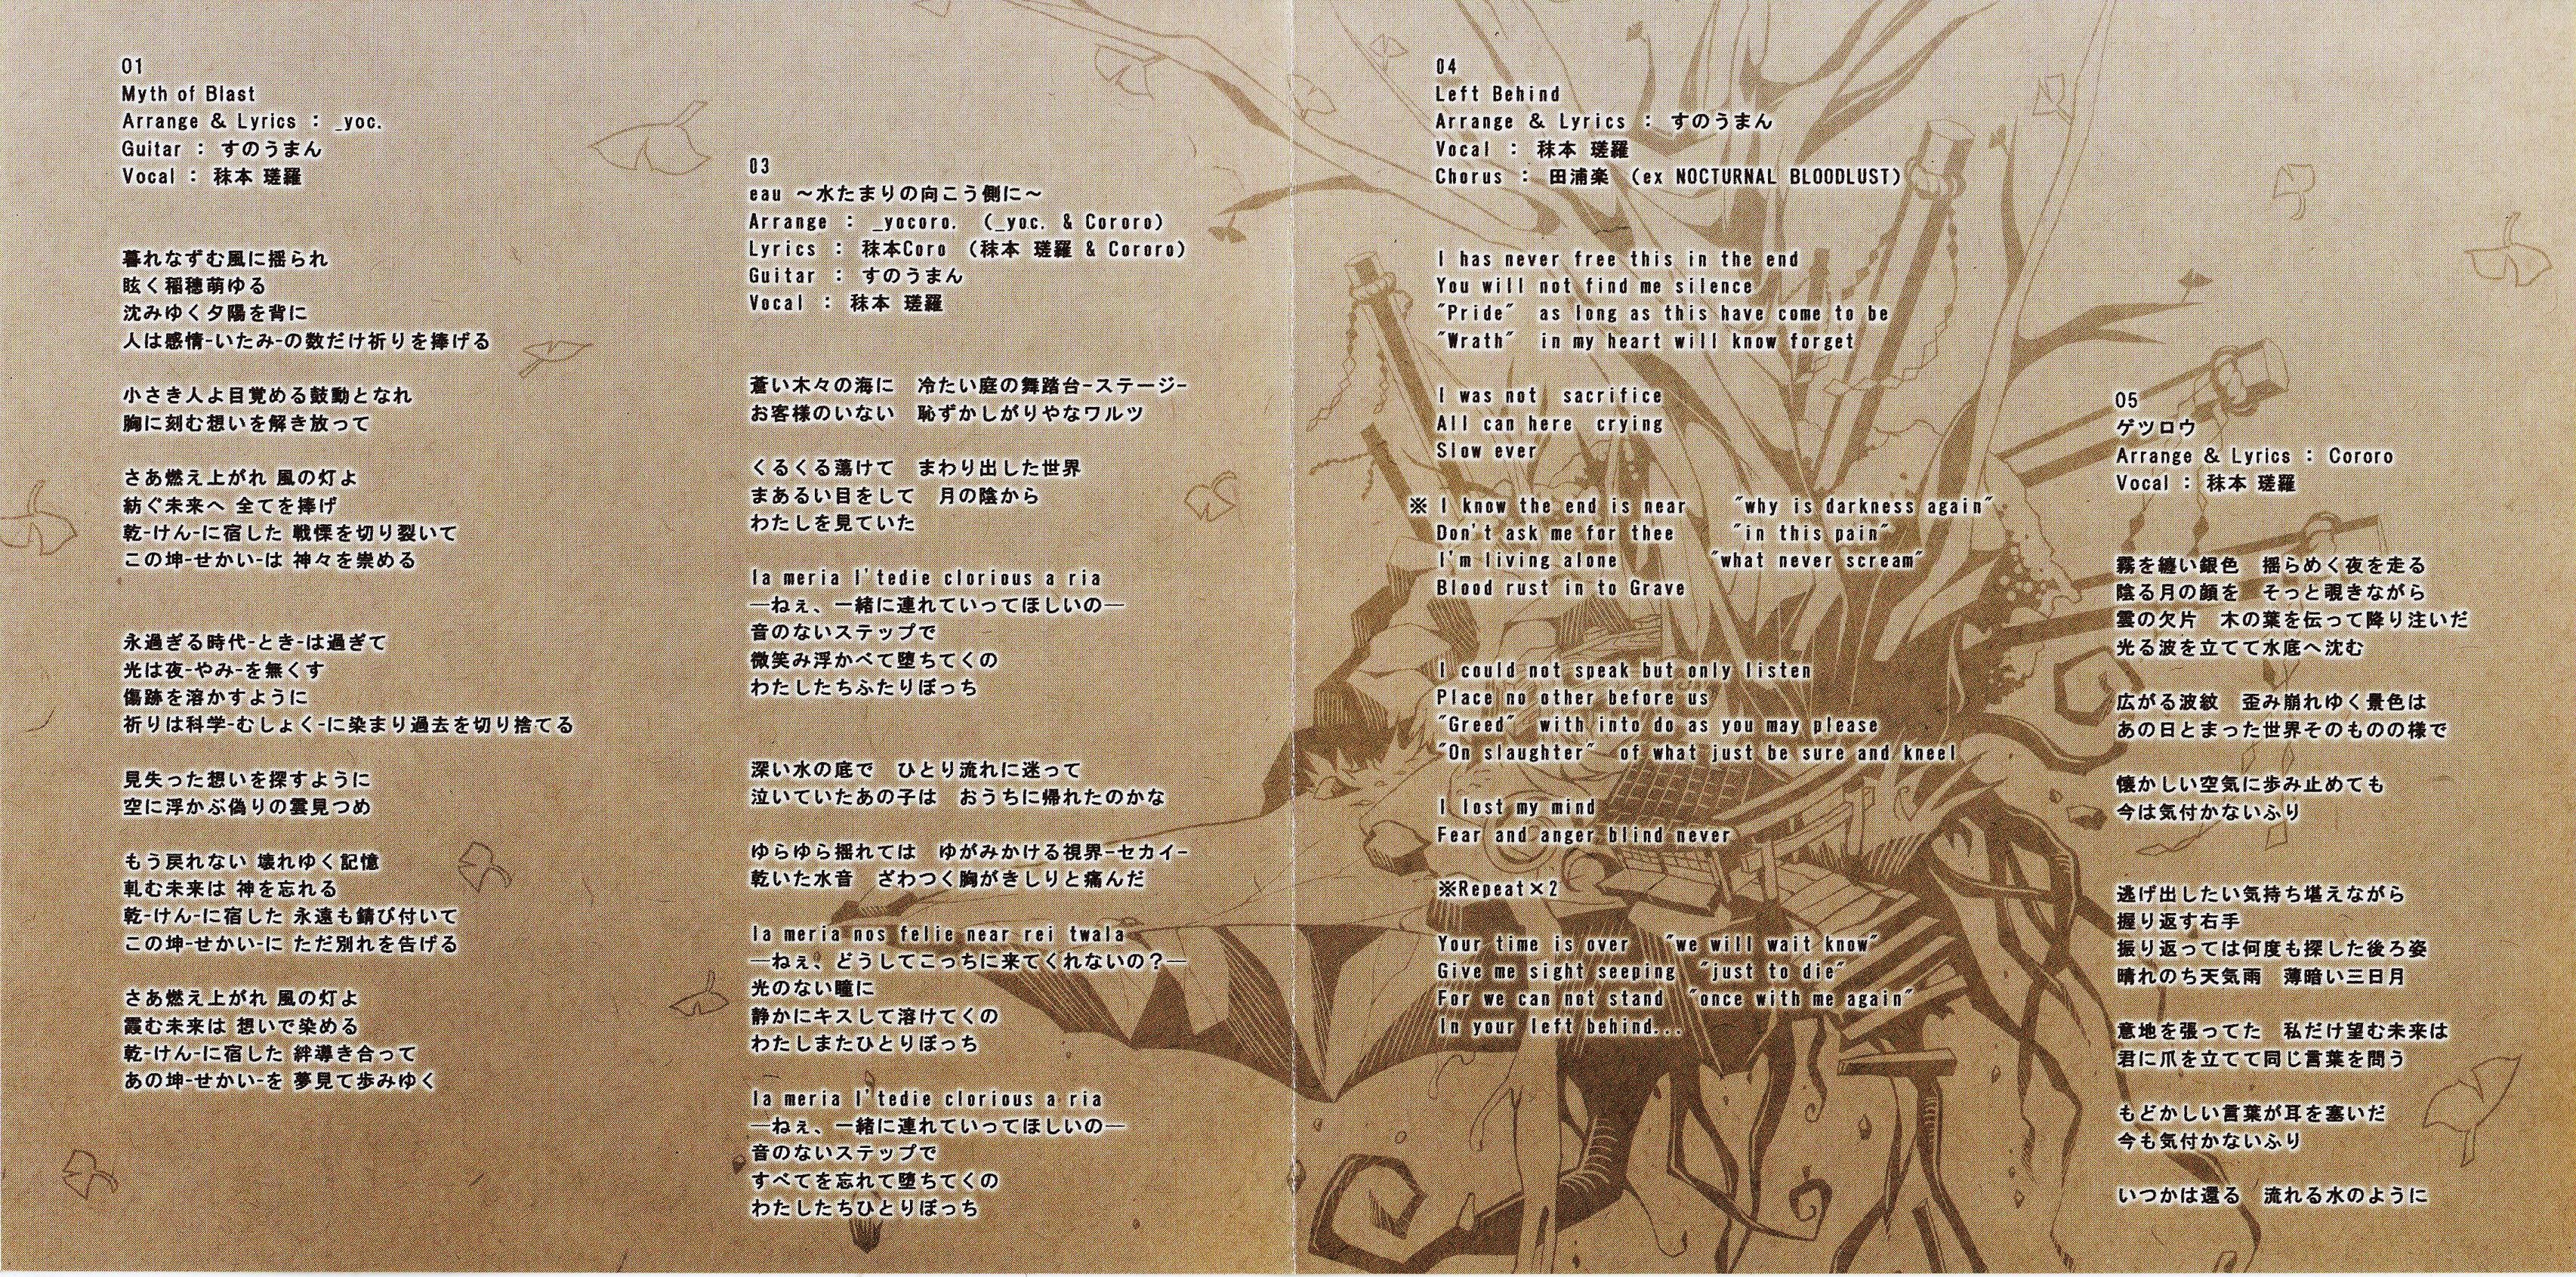 01
Myth of Blast
Arrange & Lyrics : _yoc.
Guitar : すのうまん
Vocal : 秣本 瑳羅
暮れなずむ風に揺られ
眩く稲穂萌ゆる
沈みゆく夕陽を背に
人は感情-いたみ-の数だけ祈りを捧げる
小さき人よ目覚める鼓動となれ
胸に刻む想いを解き放って
さあ燃え上がれ 風の灯よ
紡ぐ未来へ 全てを捧げ
乾-けん-に宿した 戦慄を切り裂いて
この坤-せかい-は 神々を崇める
永過ぎる時代-とき-は過ぎて
光は夜-やみ-を無くす
傷跡を溶かすように
祈りは科学-むしょく-に染まり過去を切り捨てる
見失った想いを探すように
空に浮かぶ偽りの雲見つめ
もう戻れない 壊れゆく記憶
軋む未来は 神を忘れる
乾-けん-に宿した 永遠も錆び付いて
この坤-せかい-に ただ別れを告げる
さあ燃え上がれ 風の灯よ
霞む未来は 想いで染める
乾-けん-に宿した 絆導き合って
あの坤-せかい-を 夢見て歩みゆく
03
eau ～水たまりの向こう側に～
Arrange : _yocoro. (_yoc. & Cororo)
Lyrics : 秣本Coro (秣本 瑳羅 & Cororo)
Guitar : すのうまん
Vocal : 秣本 瑳羅
蒼い木々の海に　冷たい庭の舞踏台-ステージ-
お客様のいない　恥ずかしがりやなワルツ
くるくる蕩けて　まわり出した世界
まあるい目をして　月の陰から
わたしを見ていた
la meria l'tedie clorious a ria
―ねぇ、一緒に連れていってほしいの―
音のないステップで
微笑み浮かべて堕ちてくの
わたしたちふたりぼっち
深い水の底で　ひとり流れに迷って
泣いていたあの子は　おうちに帰れたのかな
ゆらゆら揺れては　ゆがみかける視界-セカイ-
乾いた水音　ざわつく胸がきしりと痛んだ
la meria nos felie near rei twala
―ねぇ、どうしてこっちに来てくれないの？―
光のない瞳に
静かにキスして溶けてくの
わたしまたひとりぼっち
la meria l'tedie clorious a ria
―ねぇ、一緒に連れていってほしいの―
音のないステップで
すべてを忘れて堕ちてくの
わたしたちひとりぼっち
04
Left Behind
Arrange & Lyrics : すのうまん
Vocal : 秣本 瑳羅
Chorus : 田浦楽 (ex NOCTURNAL BLOODLUST)
I has never free this in the end
You will not find me silence
"Pride" as long as this have come to be
"Wrath" in my heart will know forget
I was not sacrifice
All can here crying
Slow ever
※ I know the end is near "why is darkness again"
Don't ask me for thee "in this pain"
I'm living alone "what never scream"
Blood rust in to Grave
I could not speak but only listen
Place no other before us
"Greed" with into do as you may please
"On slaughter" of what just be sure and kneel
I lost my mind
Fear and anger blind never
※Repeat×2
Your time is over "we will wait know"
Give me sight seeping "just to die"
For we can not stand "once with me again"
In your left behind...
05
ゲツロウ
Arrange & Lyrics : Cororo
Vocal : 秣本 瑳羅
霧を纏い銀色　揺らめく夜を走る
陰る月の顔を　そっと覗きながら
雲の欠片　木の葉を伝って降り注いだ
光る波を立てて水底へ沈む
広がる波紋　歪み崩れゆく景色は
あの日とまった世界そのものの様で
懐かしい空気に歩み止めても
今は気付かないふり
逃げ出したい気持ち堪えながら
握り返す右手
振り返っては何度も探した後ろ姿
晴れのち天気雨　薄暗い三日月
意地を張ってた　私だけ望む未来は
君に爪を立てて同じ言葉を問う
もどかしい言葉が耳を塞いだ
今も気付かないふり
いつかは還る　流れる水のように